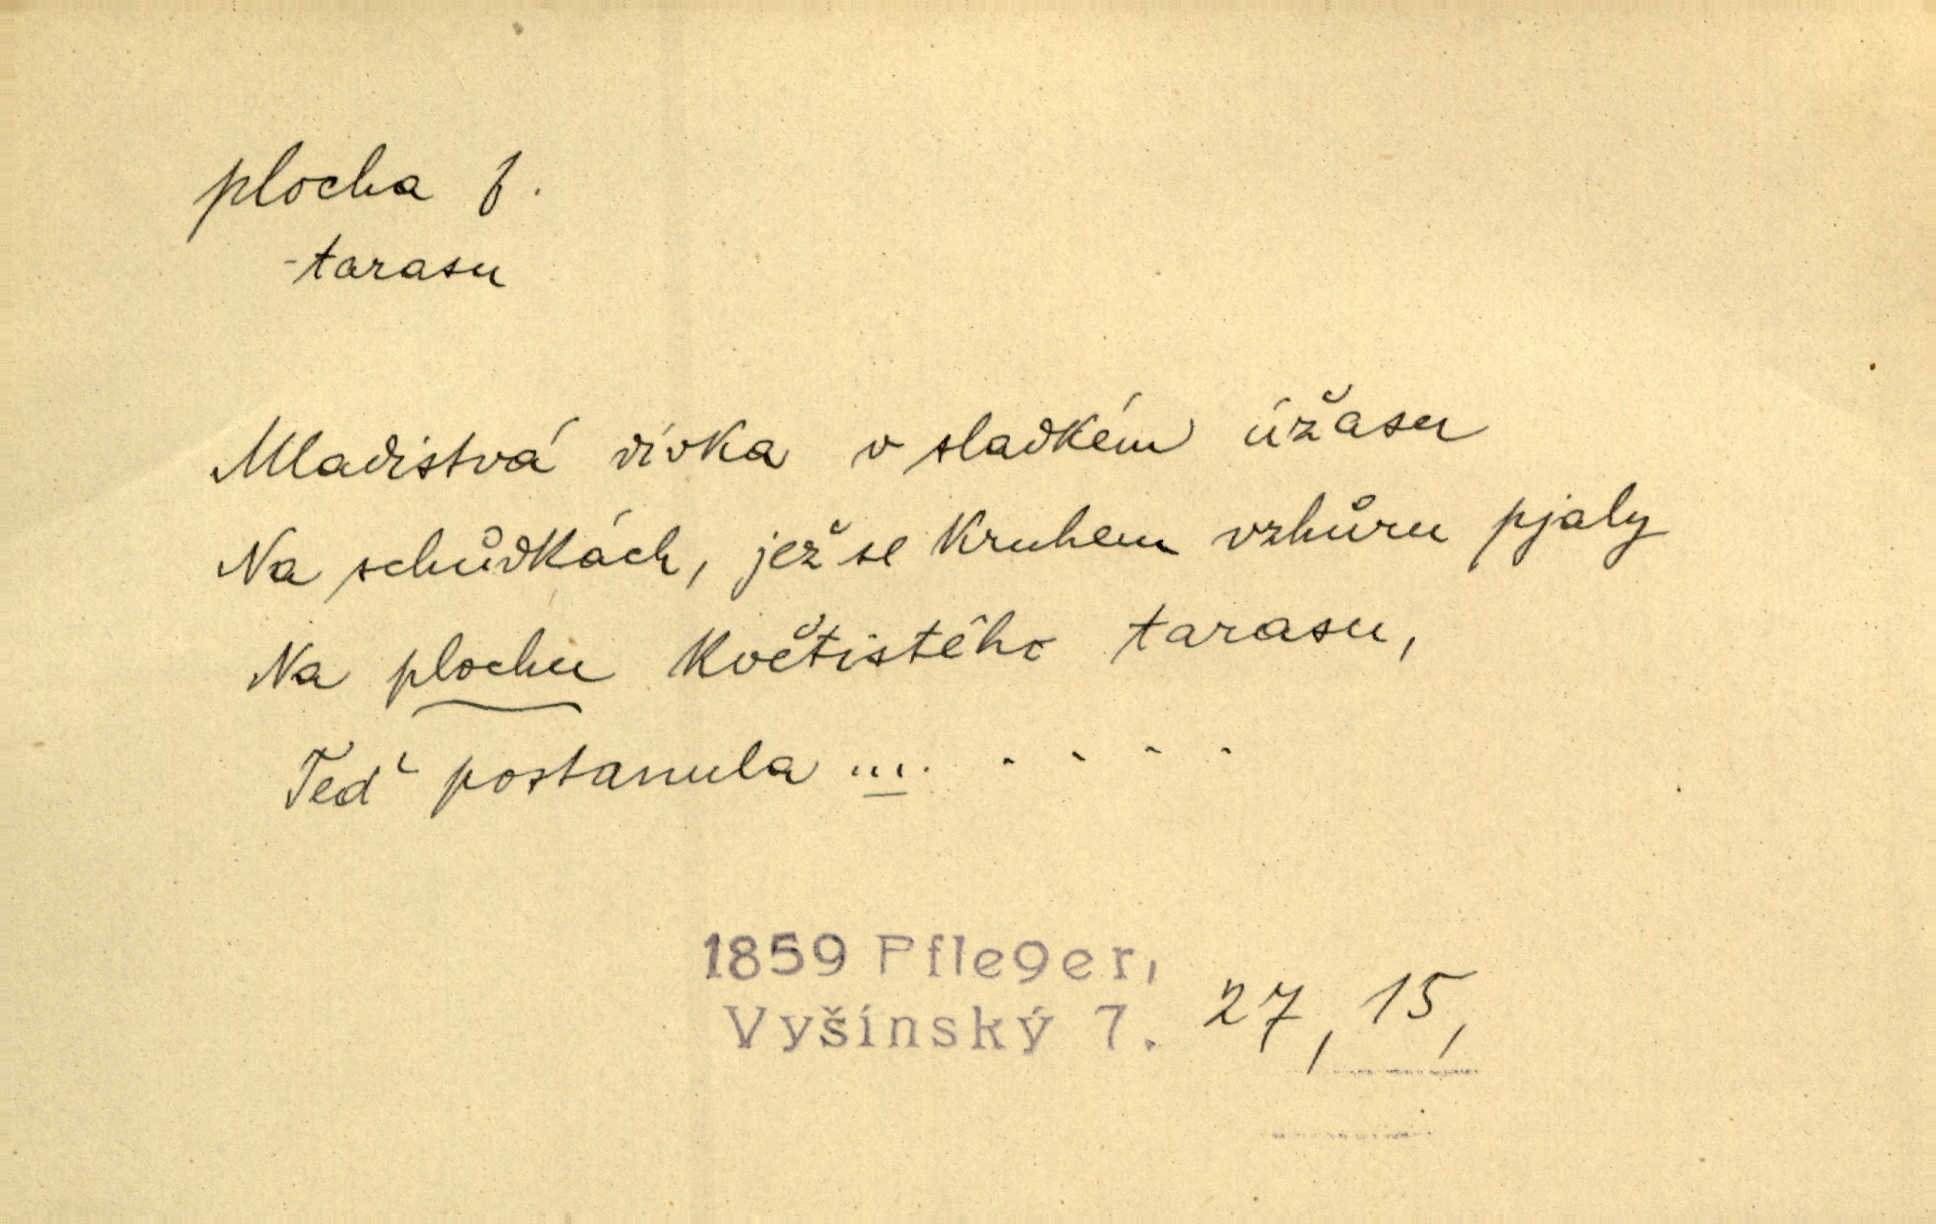 plocha f.
-tarasu
Mladistvá dívka v sladkém úžasu
Na schůdkách, jež se kruhem vzhůru pjaly
Na plochu květistého tarasu,
Teď postanula ... . . . .
1859 Pfleger,
Vyšínský 7. 27, 15,